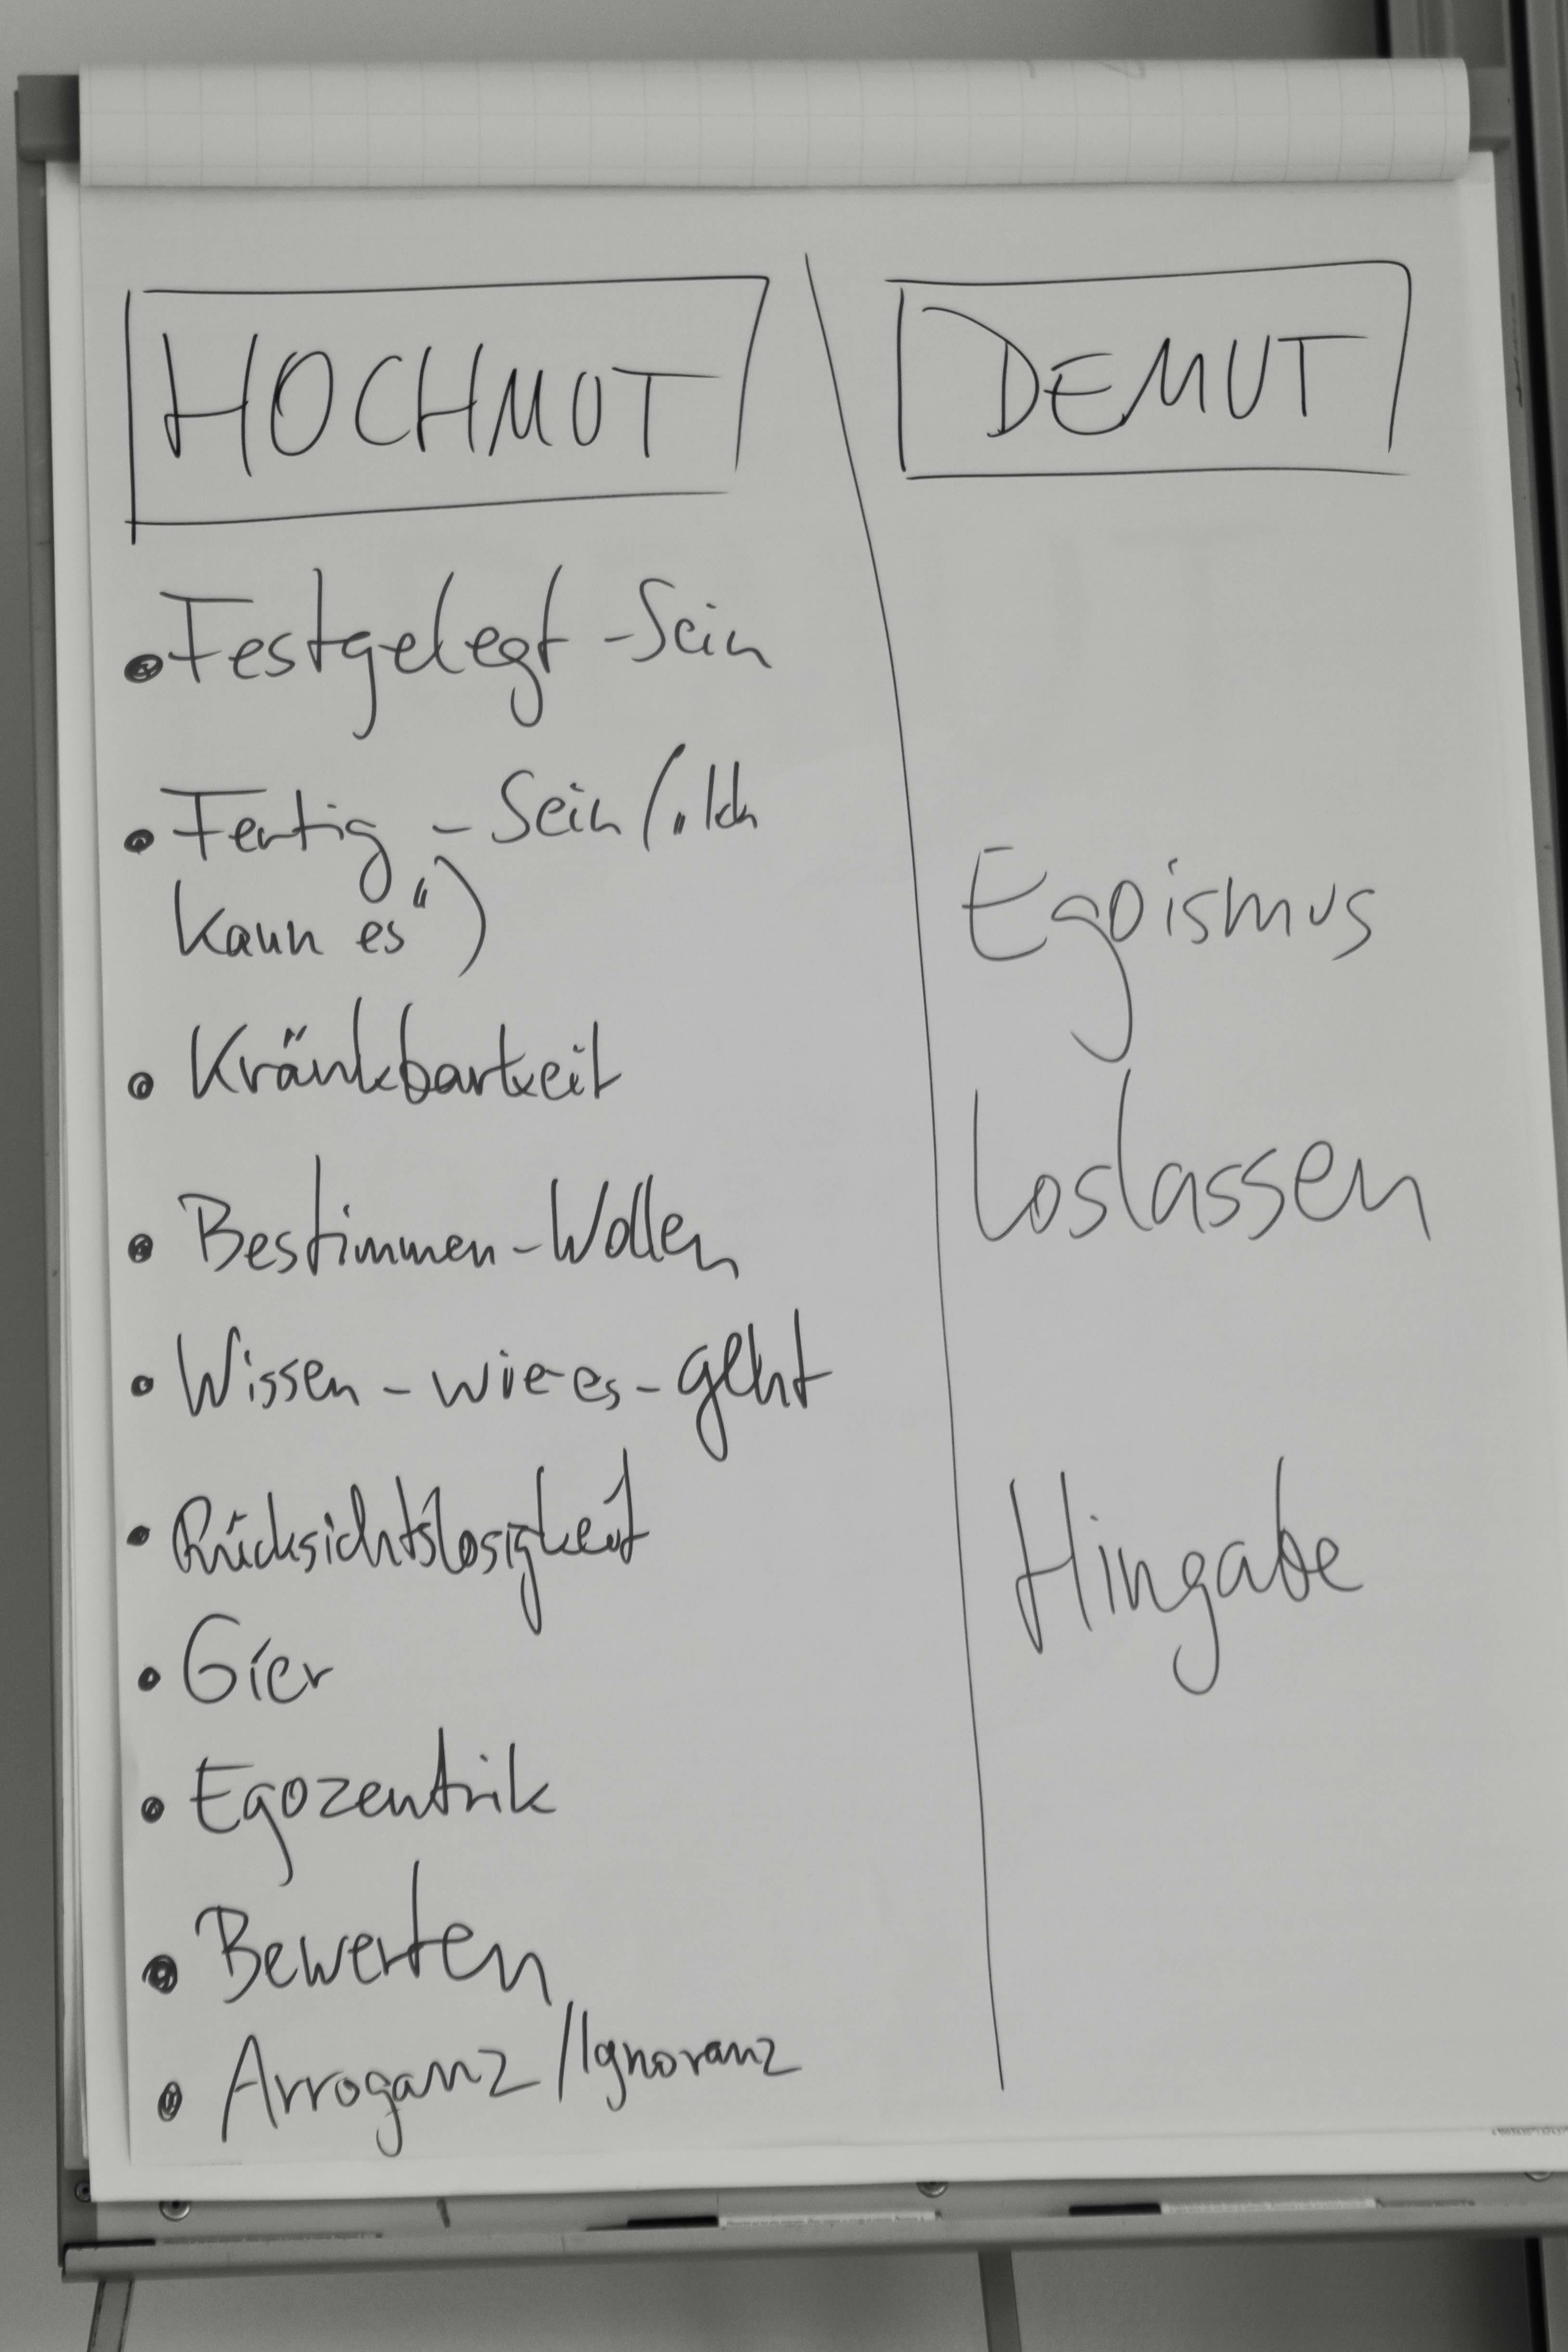 HOCHMUT
• Festgelegt-Sein
• Fertig-Sein („Ich
kann es“)
• Kränkbarkeit
• Bestimmen-Wollen
• Wissen-wie-es-geht
• Rücksichtslosigkeit
• Gier
• Egozentrik
• Bewerten
• Arroganz/Ignoranz
DEMUT
Egoismus
Loslassen
Hingabe